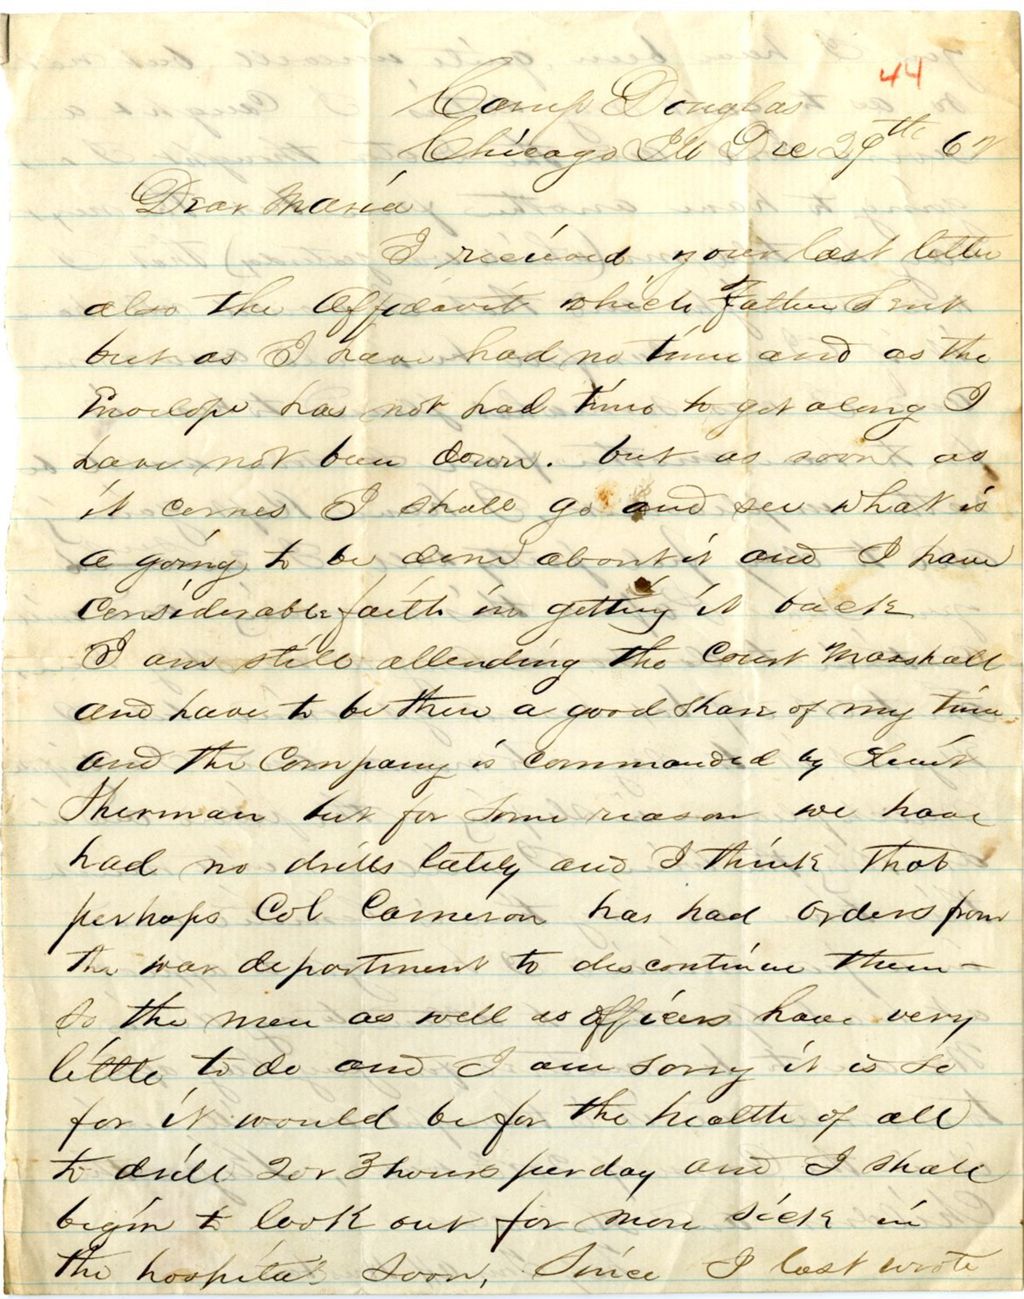 44
Camp Douglas
Chicago Ill Dec 29th 62
Dear Maria
I recieved your last letter
also the Affidavit which Father Sent
but as I have had no time and as the
Envelope has not had time to get along I
have not been down. but as soon as
it comes I shall go and see what is
a going to be done about it and I have
considerable faith in getting it back
I am still attending the Court Marshall
and have to be there a good share of my time
and the Company is commanded by Lieut
Sherman but for some reason we have
had no drills lately and I think that
perhaps Col Cameron has had orders from
the war department to discontinue them –
So the men as well as officers have very
little to do and I am sorry it is so
for it would be for the health of all
to drill 2 or 3 hours per day and I shall
begin to look out for more sick in
the hospital soon, Since I last wrote